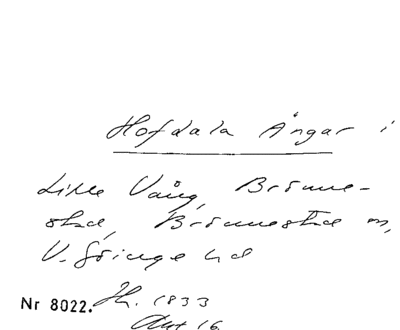 Hofdala Ängar i
Lilla Vång, Brönne-
stad, Brönnestad sn,
V. Göinge hd
Nr 8022. Jh. 1833
Akt 16.